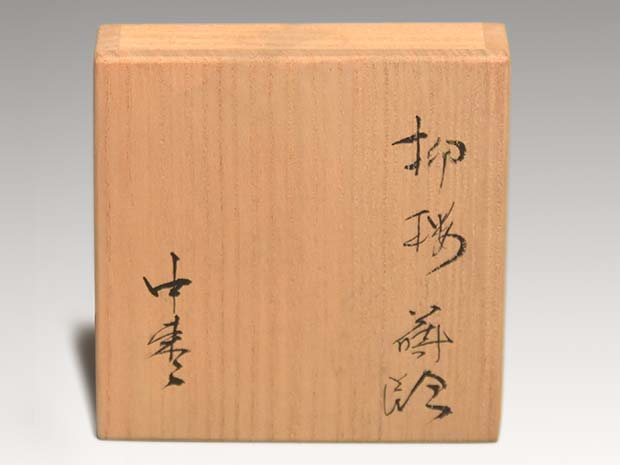 柳桜蒔絵
中棗